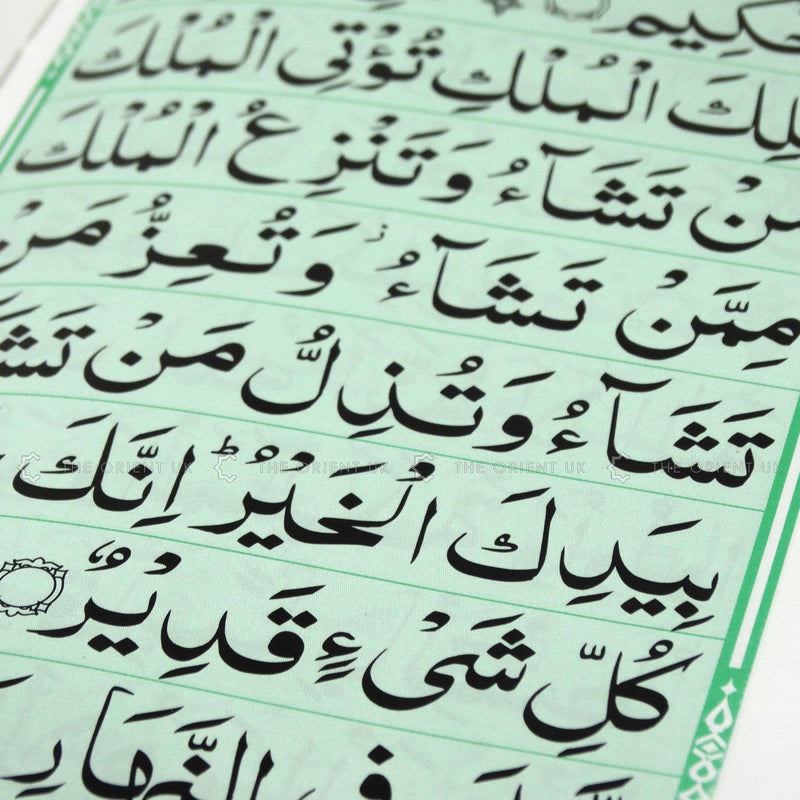 لِكَ الْمُلْكِ تُؤْتِى الْمُلْكَ
مَنْ تَشَآءُ وَتَنْزِعُ الْمُلْكَ
مِمَّنْ تَشَآءُ ۫ وَتُعِزُّ مَنْ
تَشَآءُ وَتُذِلُّ مَنْ تَشَ
بِيَدِكَ الْخَيْرُ ؕ اِنَّكَ
كُلِّ شَىْءٍ قَدِيْرٌ
النَّهَارِ
THE ORIENT UK THE ORIENT UK THE ORIENT UK THE ORIENT UK